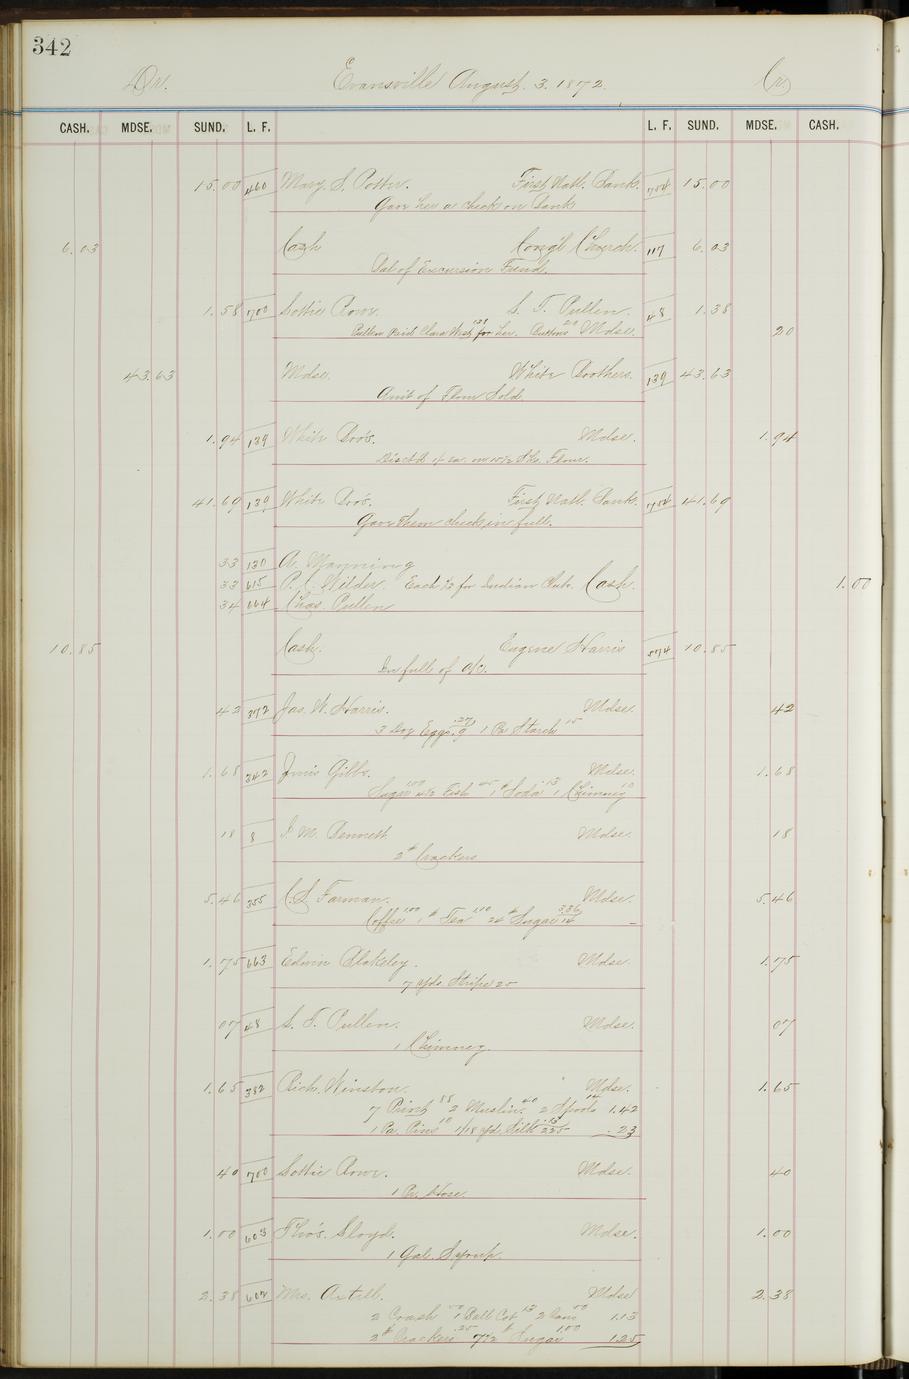 342
Dr. Evansville August. 3. 1872. Cr
CASH. MDSE. SUND. L. F. L. F. SUND. MDSE. CASH.
15.00 460 Mary. S. Potter. First Natl. Bank. 704 15.00
Gave her a check on Bank
6.03 Cash Cong'l Church. 117 6.03
Bal of Excursion Fund.
1.58 700 Lottie Rowe. S. T. Pullen. 48 1.38
Pullen Paid Clara West 138 for her. Buttons 20 Mdse. 20
43.63 Mdse. White Brothers. 139 43.63
Amt of Flour Sold.
1.94 139 White Bro's. Mdse. 1.94
Flour.
41.69 139 White Bro's. First Natl. Bank. 704 41.69
Gave Them check in full.
33 130 A. Manning
33 615 P. C. Wilder. Each ⅓ for Indian Club. Cash. 1.00
34 664 Chas. Pullen
10.85 Cash. Eugene Harris 574 10.85
In full of a/c.
42 372 Jas. W. Harris. Mdse. 42
3 Doz Eggs .27 9 1 Pa Starch 15
1.68 342 Gibbs. Mdse. 1.68
Sugar 100 Fish 45 1# Soda 13 1 Chimney 10
18 8 M. Bennett Mdse. 18
2# Crackers
5.46 355 C. S. Farman. Mdse. 5.46
Coffee 100 1# Tea 100 24# Sugar 336 14
1.75 663 Edwin Blakeley. Mdse. 1.75
7 yds. Stripe 25
07 48 S. T. Pullen. Mdse. 07
1 Chimney.
1.65 382 Rich. Winston. Mdse. 1.65
7 Print 88 2 Muslin. 40 2 Spools 14 1.42
1 Pa. Pins 10 yd. Silk .23
40 700 Lottie Rowe. Mdse. 40
1 Pr. Hose.
1.00 603 Tho's. Lloyd. Mdse. 1.00
1 Gal. Syrup.
2.38 602 Mrs. Axtell. Mdse 2.38
2 Crash 50 1 Ball Cot 13 2 50 1.13
2# Crackers .25 7½# Sugar 1.00 1.25